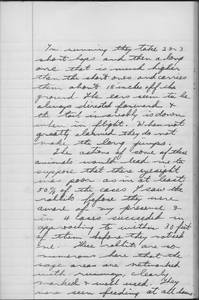 In running they take 2 or 3
short hops and then a long
one that is much higher
than the short ones and carries
them about 18 inches off the
ground. The ears seem to be
always directed forward &
the tail invariably is down
when in flight. When not
greatly alarmed they do not
make the long jumps.
The actions of some of these
animals would lead me to
suppose that their eyesight
was poor as in at least
50% of the cases I saw the
rabbits before they were
aware of my presence &
in 4 cases succeeded in
approaching to within 30 feet
of them before they noticed
me. These rabbits are so
numerous here that the
sage areas are networked
with runways, clearly
marked & well used. They
were seen feeding at all hours